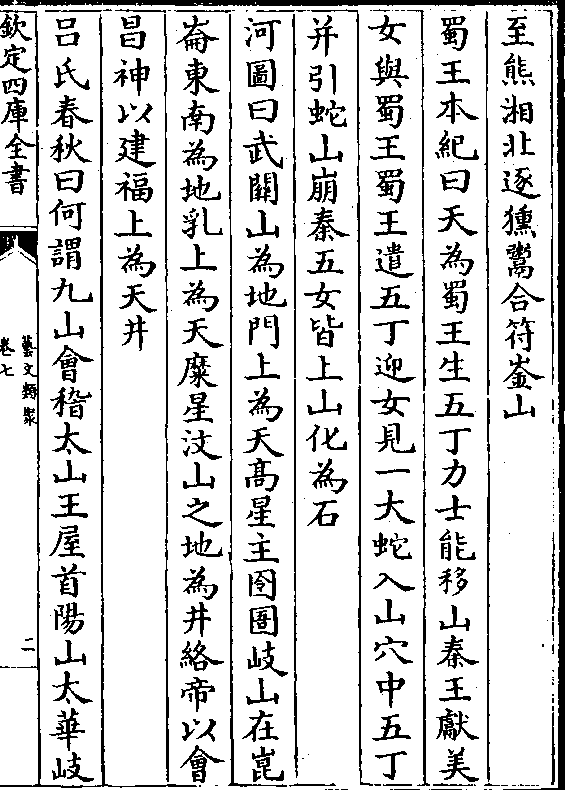 至熊湘北逐獯鬻合符崟山
蜀王本紀曰天為蜀王生五丁力士能移山秦王獻美
女與蜀王蜀王遣五丁迎女見一大蛇入山穴中五丁
并引蛇山崩秦五女皆上山化為石
河圖曰武關山為地門上為天髙星主囹圄岐山在崑
崙東南為地乳上為天糜星汶山之地為井絡帝以㑹
昌神以建福上為天井
吕氏春秋曰何謂九山會稽太山王屋首陽山太華岐
欽定四庫全書
藝文類聚
卷七
二